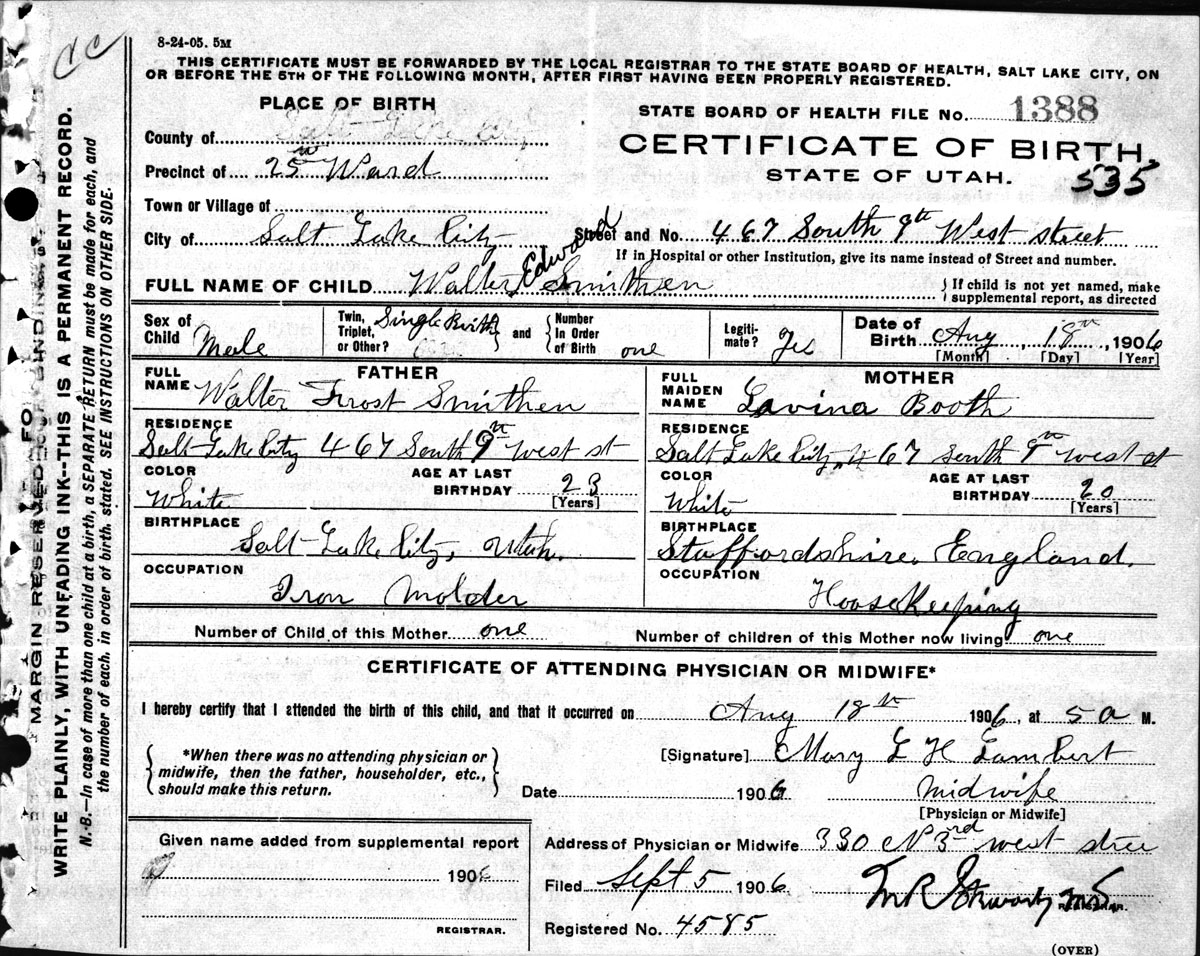 8-24-05. 5M
THIS CERTIFICATE MUST BE FORWARDED BY THE LOCAL REGISTRAR TO THE STATE BOARD OF HEALTH, SALT LAKE CITY, ON
OR BEFORE THE 5TH OF THE FOLLOWING MONTH, AFTER FIRST HAVING BEEN PROPERLY REGISTERED.
PLACE OF BIRTH
STATE BOARD OF HEALTH FILE No. 1388
County of Salt Lake City
CERTIFICATE OF BIRTH
Precinct of 25 Ward
STATE OF UTAH. 535
Town or Village of
City of Salt Lake City Street and No. 467 South 9th West street
If in Hospital or other Institution, give its name instead of Street and number.
FULL NAME OF CHILD Walter Edward Smithen
If child is not yet named, make supplemental report, as directed
Sex of Child Male
Twin, Triplet, or Other? Single Birth and Number In Order of Birth one
Legitimate? Yes
Date of Birth Aug 18th, 1906
[Month] [Day] [Year]
FATHER
FULL NAME Walter Frost Smithen
RESIDENCE
Salt Lake City 467 South 9th West st
COLOR White
AGE AT LAST BIRTHDAY 23
[Years]
BIRTHPLACE
Salt Lake City, Utah.
OCCUPATION
Iron Molder
MOTHER
FULL MAIDEN NAME Lavina Booth
RESIDENCE
Salt Lake City, 467 South 9th west st
COLOR White
AGE AT LAST BIRTHDAY 20
[Years]
BIRTHPLACE
Staffordshire. England.
OCCUPATION
HooseKeeping
Number of Child of this Mother one
Number of children of this Mother now living one
CERTIFICATE OF ATTENDING PHYSICIAN OR MIDWIFE*
I hereby certify that I attended the birth of this child, and that it occurred on Aug 18th 1906, at 5 a M.
*When there was no attending physician or
midwife, then the father, householder, etc.,
should make this return.
[Signature] Mary L H Lambert
Date 1906 Midwife
[Physician or Midwife]
Given name added from supplemental report
190
REGISTRAR.
Address of Physician or Midwife 330 N 3rd west stree
Filed Sept 5 1906
REGISTRAR.
Registered No. 4585
(OVER)
MARGIN RESERVED FOR BINDING
WRITE PLAINLY, WITH UNFADING INK--THIS IS A PERMANENT RECORD.
N.B.--In case of more than one child at birth, a SEPARATE RETURN must be made for each, and
the number of each, in order of birth, stated. SEE INSTRUCTIONS ON OTHER SIDE.